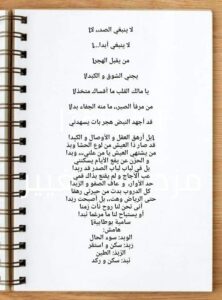 لا ينبغي الصد،، لا!
لا ينبغي أبدا...!
من يقبل الهجر!
يجني الشوق و الكبدا!
يا مالك القلب ما أقساك متخذلا!
من مرفأ الصبر،، ما منه الجفاء بدا!
قد أجهد النبض هجر بات يسهدني
بل أزهق العقل و الأوصال و الكبدا!
قد صار ذا العيش من لوع الحشا وبدا
من يشتهي العيش يا من علني،، وبدا
و الحزن عن يفع الأيام يسكنني
بل في لباب لباب الصدر قد ربدا
عب الأجاج و لم ينفع بذاك فمي
حد الأوار، و عاف الصفو و الزبدا
كل الدروب بدت من حيرتي رهقا
حتى الرياض وهت،، بل أصبحت ربدا
أنى لحن لنا روح نأت زمنا
أو يستباح لنا ما مرغما نبدا
سامية بوطابية!
هامش:
الوبد: سوء الحال
ربد: سكن و استقر
الربد: الطين
نبد: سكن و ركد